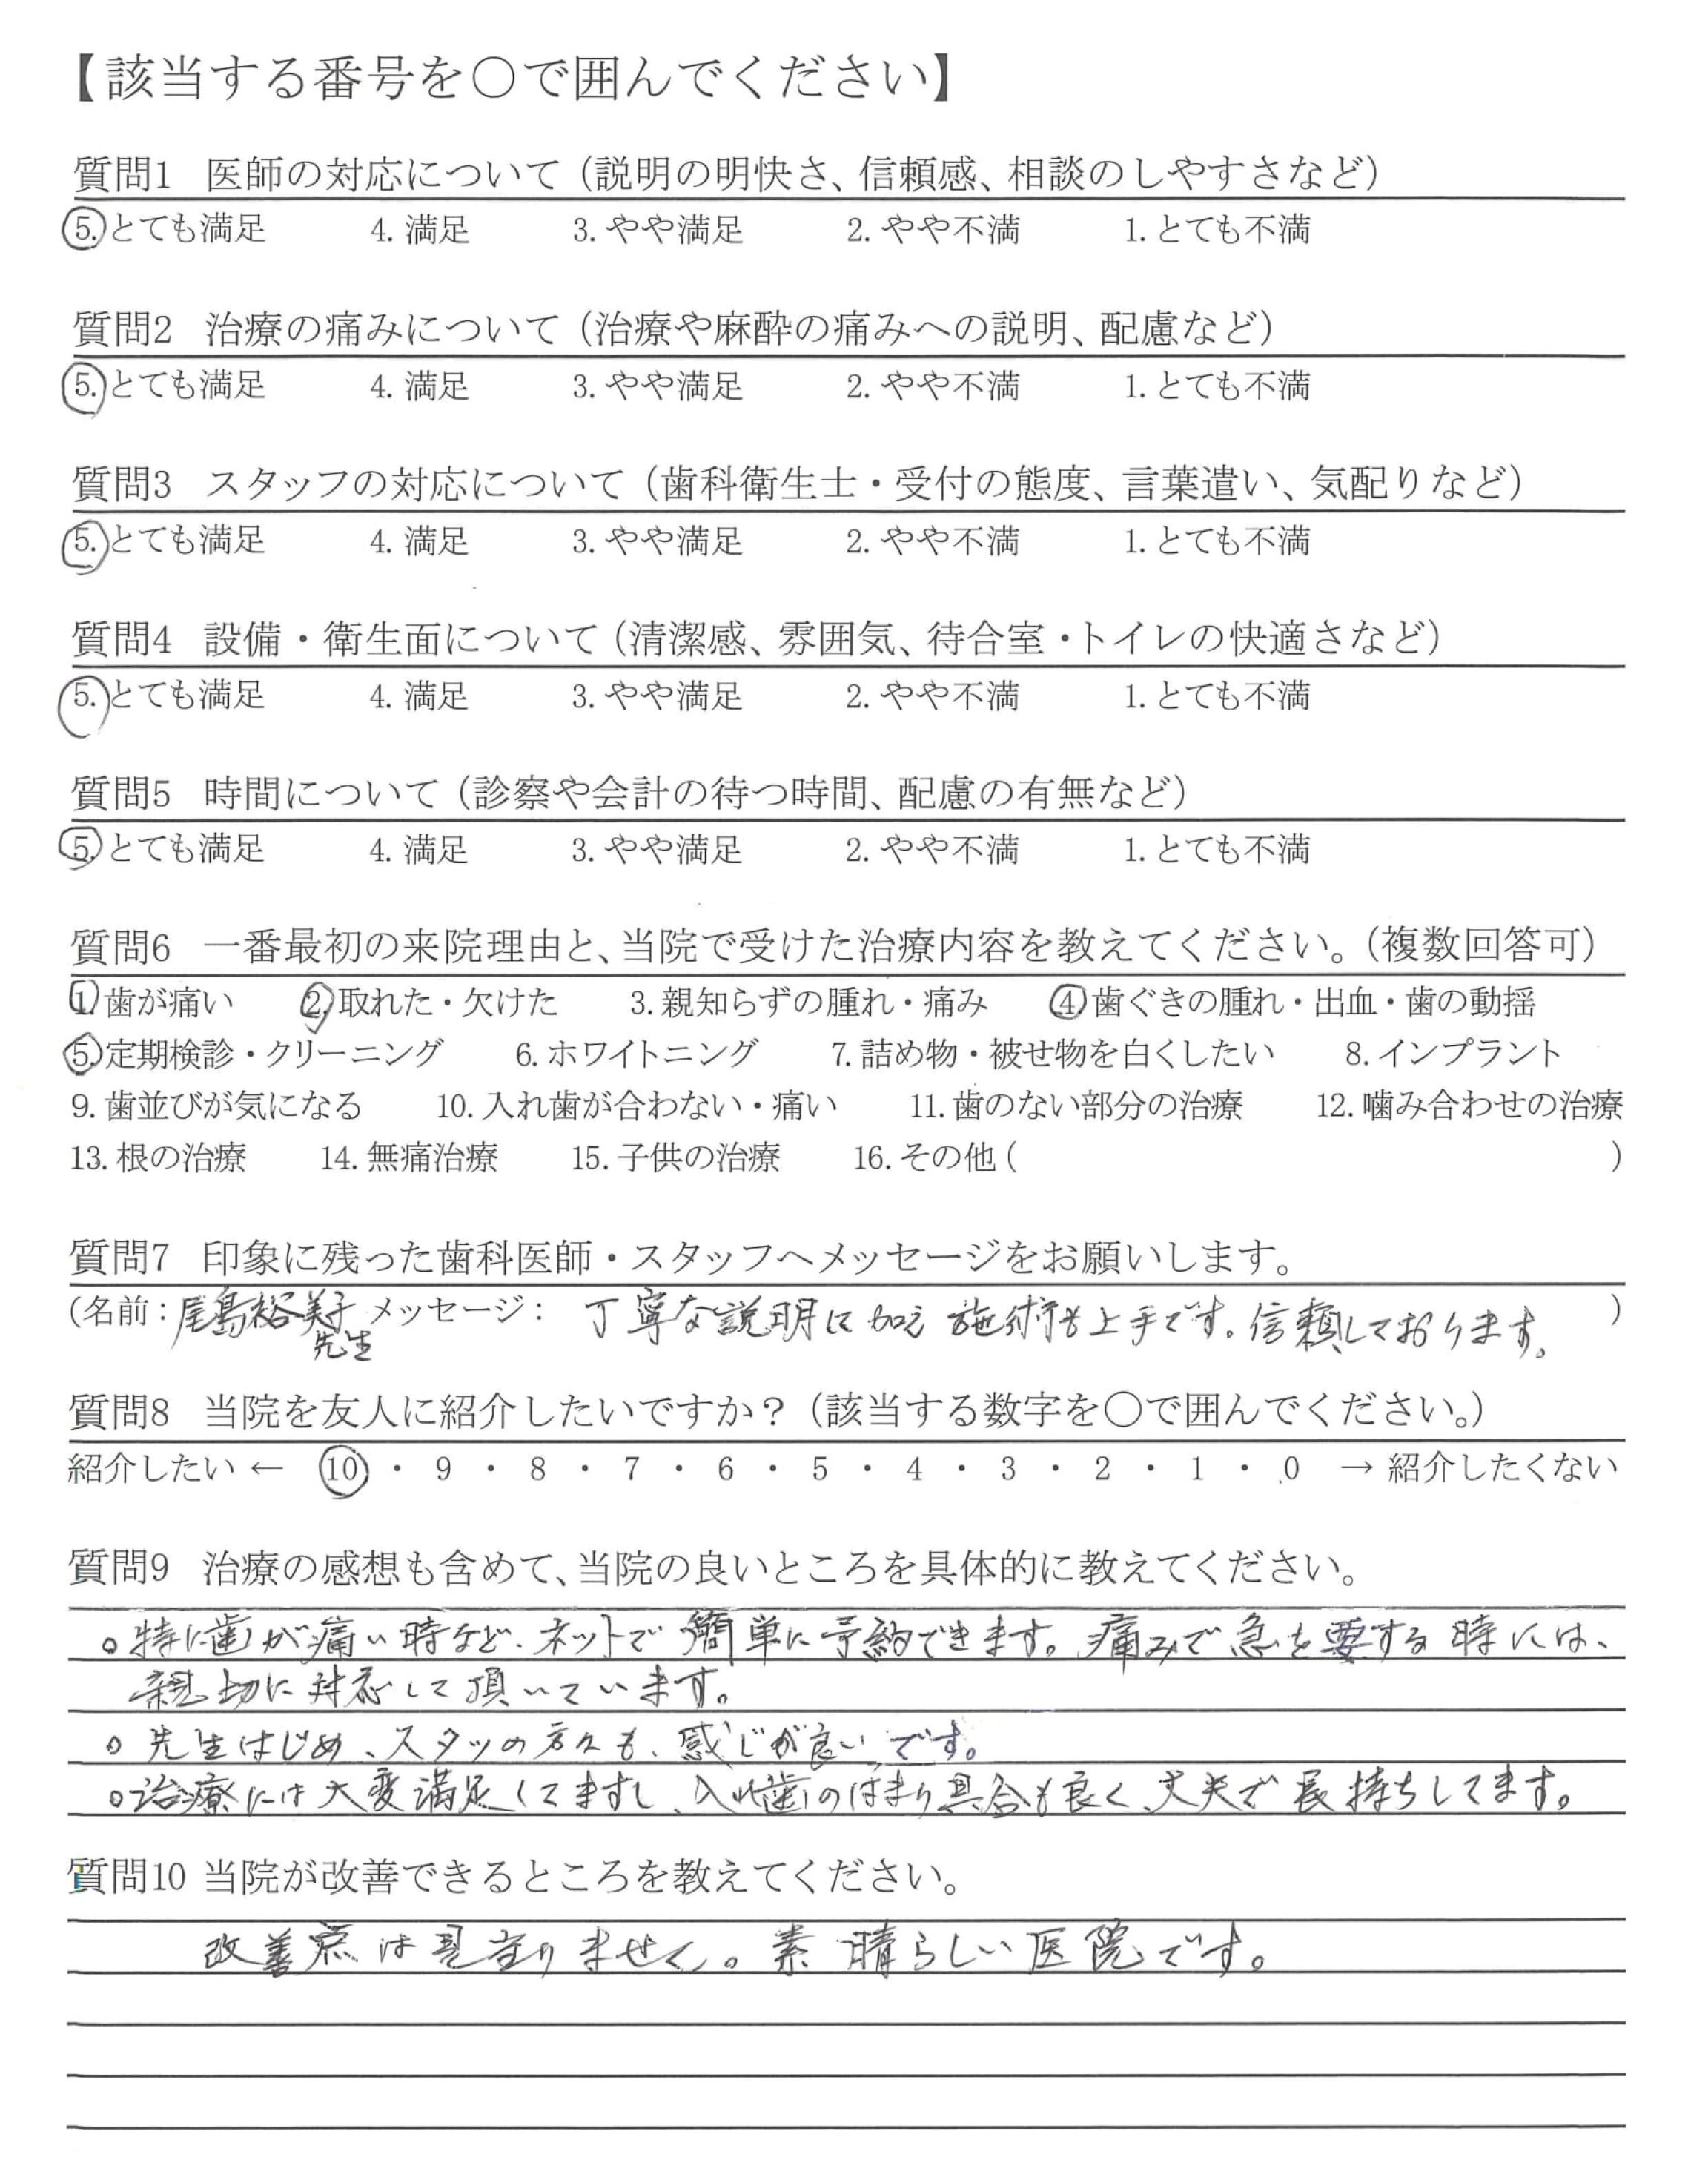 【該当する番号を○で囲んでください】
質問1 医師の対応について（説明の明快さ、信頼感、相談のしやすさなど）
5. とても満足 4. 満足 3. やや満足 2. やや不満 1. とても不満
質問2 治療の痛みについて（治療や麻酔の痛みへの説明、配慮など）
5. とても満足 4. 満足 3. やや満足 2. やや不満 1. とても不満
質問3 スタッフの対応について（歯科衛生士・受付の態度、言葉遣い、気配りなど）
5. とても満足 4. 満足 3. やや満足 2. やや不満 1. とても不満
質問4 設備・衛生面について（清潔感、雰囲気、待合室・トイレの快適さなど）
5. とても満足 4. 満足 3. やや満足 2. やや不満 1. とても不満
質問5 時間について（診察や会計の待つ時間、配慮の有無など）
5. とても満足 4. 満足 3. やや満足 2. やや不満 1. とても不満
質問6 一番最初の来院理由と、当院で受けた治療内容を教えてください。（複数回答可）
1. 歯が痛い 2. 取れた・欠けた 3. 親知らずの腫れ・痛み 4. 歯ぐきの腫れ・出血・歯の動揺
5. 定期検診・クリーニング 6. ホワイトニング 7. 詰め物・被せ物を白くしたい 8. インプラント
9. 歯並びが気になる 10. 入れ歯が合わない・痛い 11. 歯のない部分の治療 12. 噛み合わせの治療
13. 根の治療 14. 無痛治療 15. 子供の治療 16. その他（ ）
質問7 印象に残った歯科医師・スタッフへメッセージをお願いします。
（名前：尾島裕美子 メッセージ： 丁寧な説明に加え 施術も上手です。信頼しております。）
先生
質問8 当院を友人に紹介したいですか？（該当する数字を○で囲んでください。）
紹介したい ← 10 ・ 9 ・ 8 ・ 7 ・ 6 ・ 5 ・ 4 ・ 3 ・ 2 ・ 1 ・ 0 → 紹介したくない
質問9 治療の感想も含めて、当院の良いところを具体的に教えてください。
○特に歯が痛い時など、ネットで簡単に予約できます。痛みで急を要する時には、
親切に対応して頂いています。
○先生はじめ、スタッの方々も、感じが良いです。
○治療には大変満足してますし、入れ歯のはまり具合も良く、丈夫で長持ちしてます。
質問10 当院が改善できるところを教えてください。
改善点は見当りません。素晴らしい医院です。